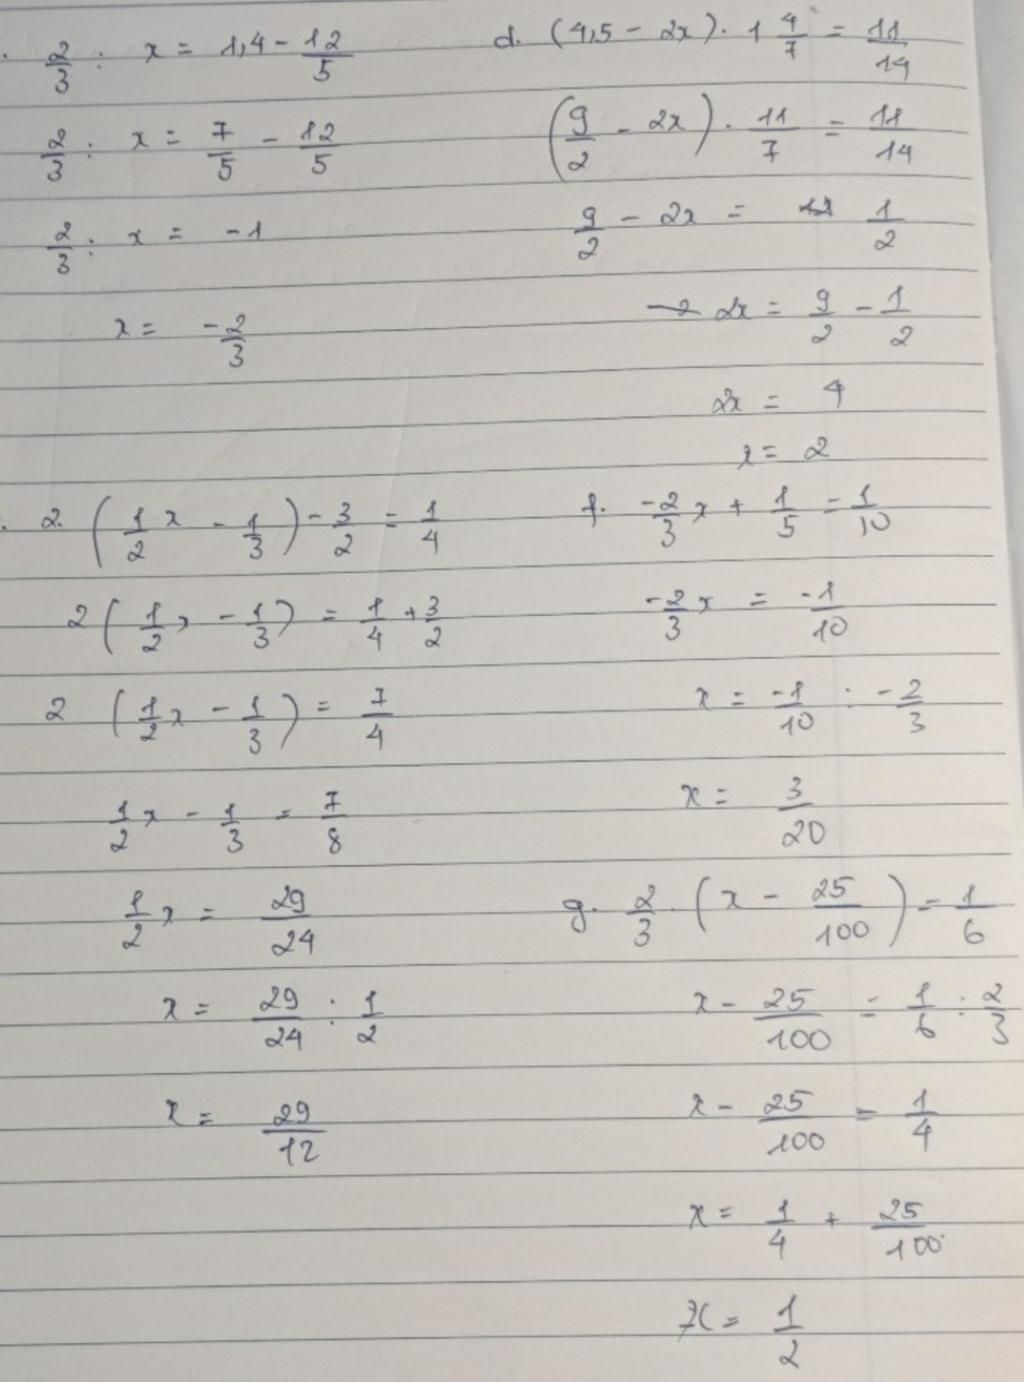 . 2/3 : x = 1,4 - 12/5
2/3 : x = 7/5 - 12/5
2/3 : x = -1
x = -2/3
d. (4,5 - 2x) . 1 4/7 = 11/14
(9/2 - 2x) . 11/7 = 11/14
9/2 - 2x = 1/2
2x = 9/2 - 1/2
2x = 4
x = 2
. 2. (1/2 x - 1/3) - 3/2 = 1/4
2 (1/2 x - 1/3) = 1/4 + 3/2
2 (1/2 x - 1/3) = 7/4
1/2 x - 1/3 = 7/8
1/2 x = 29/24
x = 29/24 : 1/2
x = 29/12
f. -2/3 x + 1/5 = 1/10
-2/3 x = -1/10
x = -1/10 : -2/3
x = 3/20
g. 2/3 . (x - 25/100) = 1/6
x - 25/100 = 1/6 : 2/3
x - 25/100 = 1/4
x = 1/4 + 25/100
x = 1/2